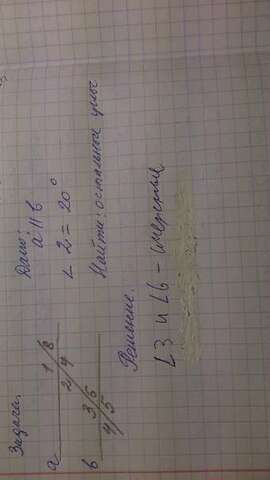 Задача.
Дано:
a || b
∠ 2 = 20°
Найти: остальные углы
a 1 8
2 7
b 3 6
4 5
Решение.
∠3 и ∠6 -